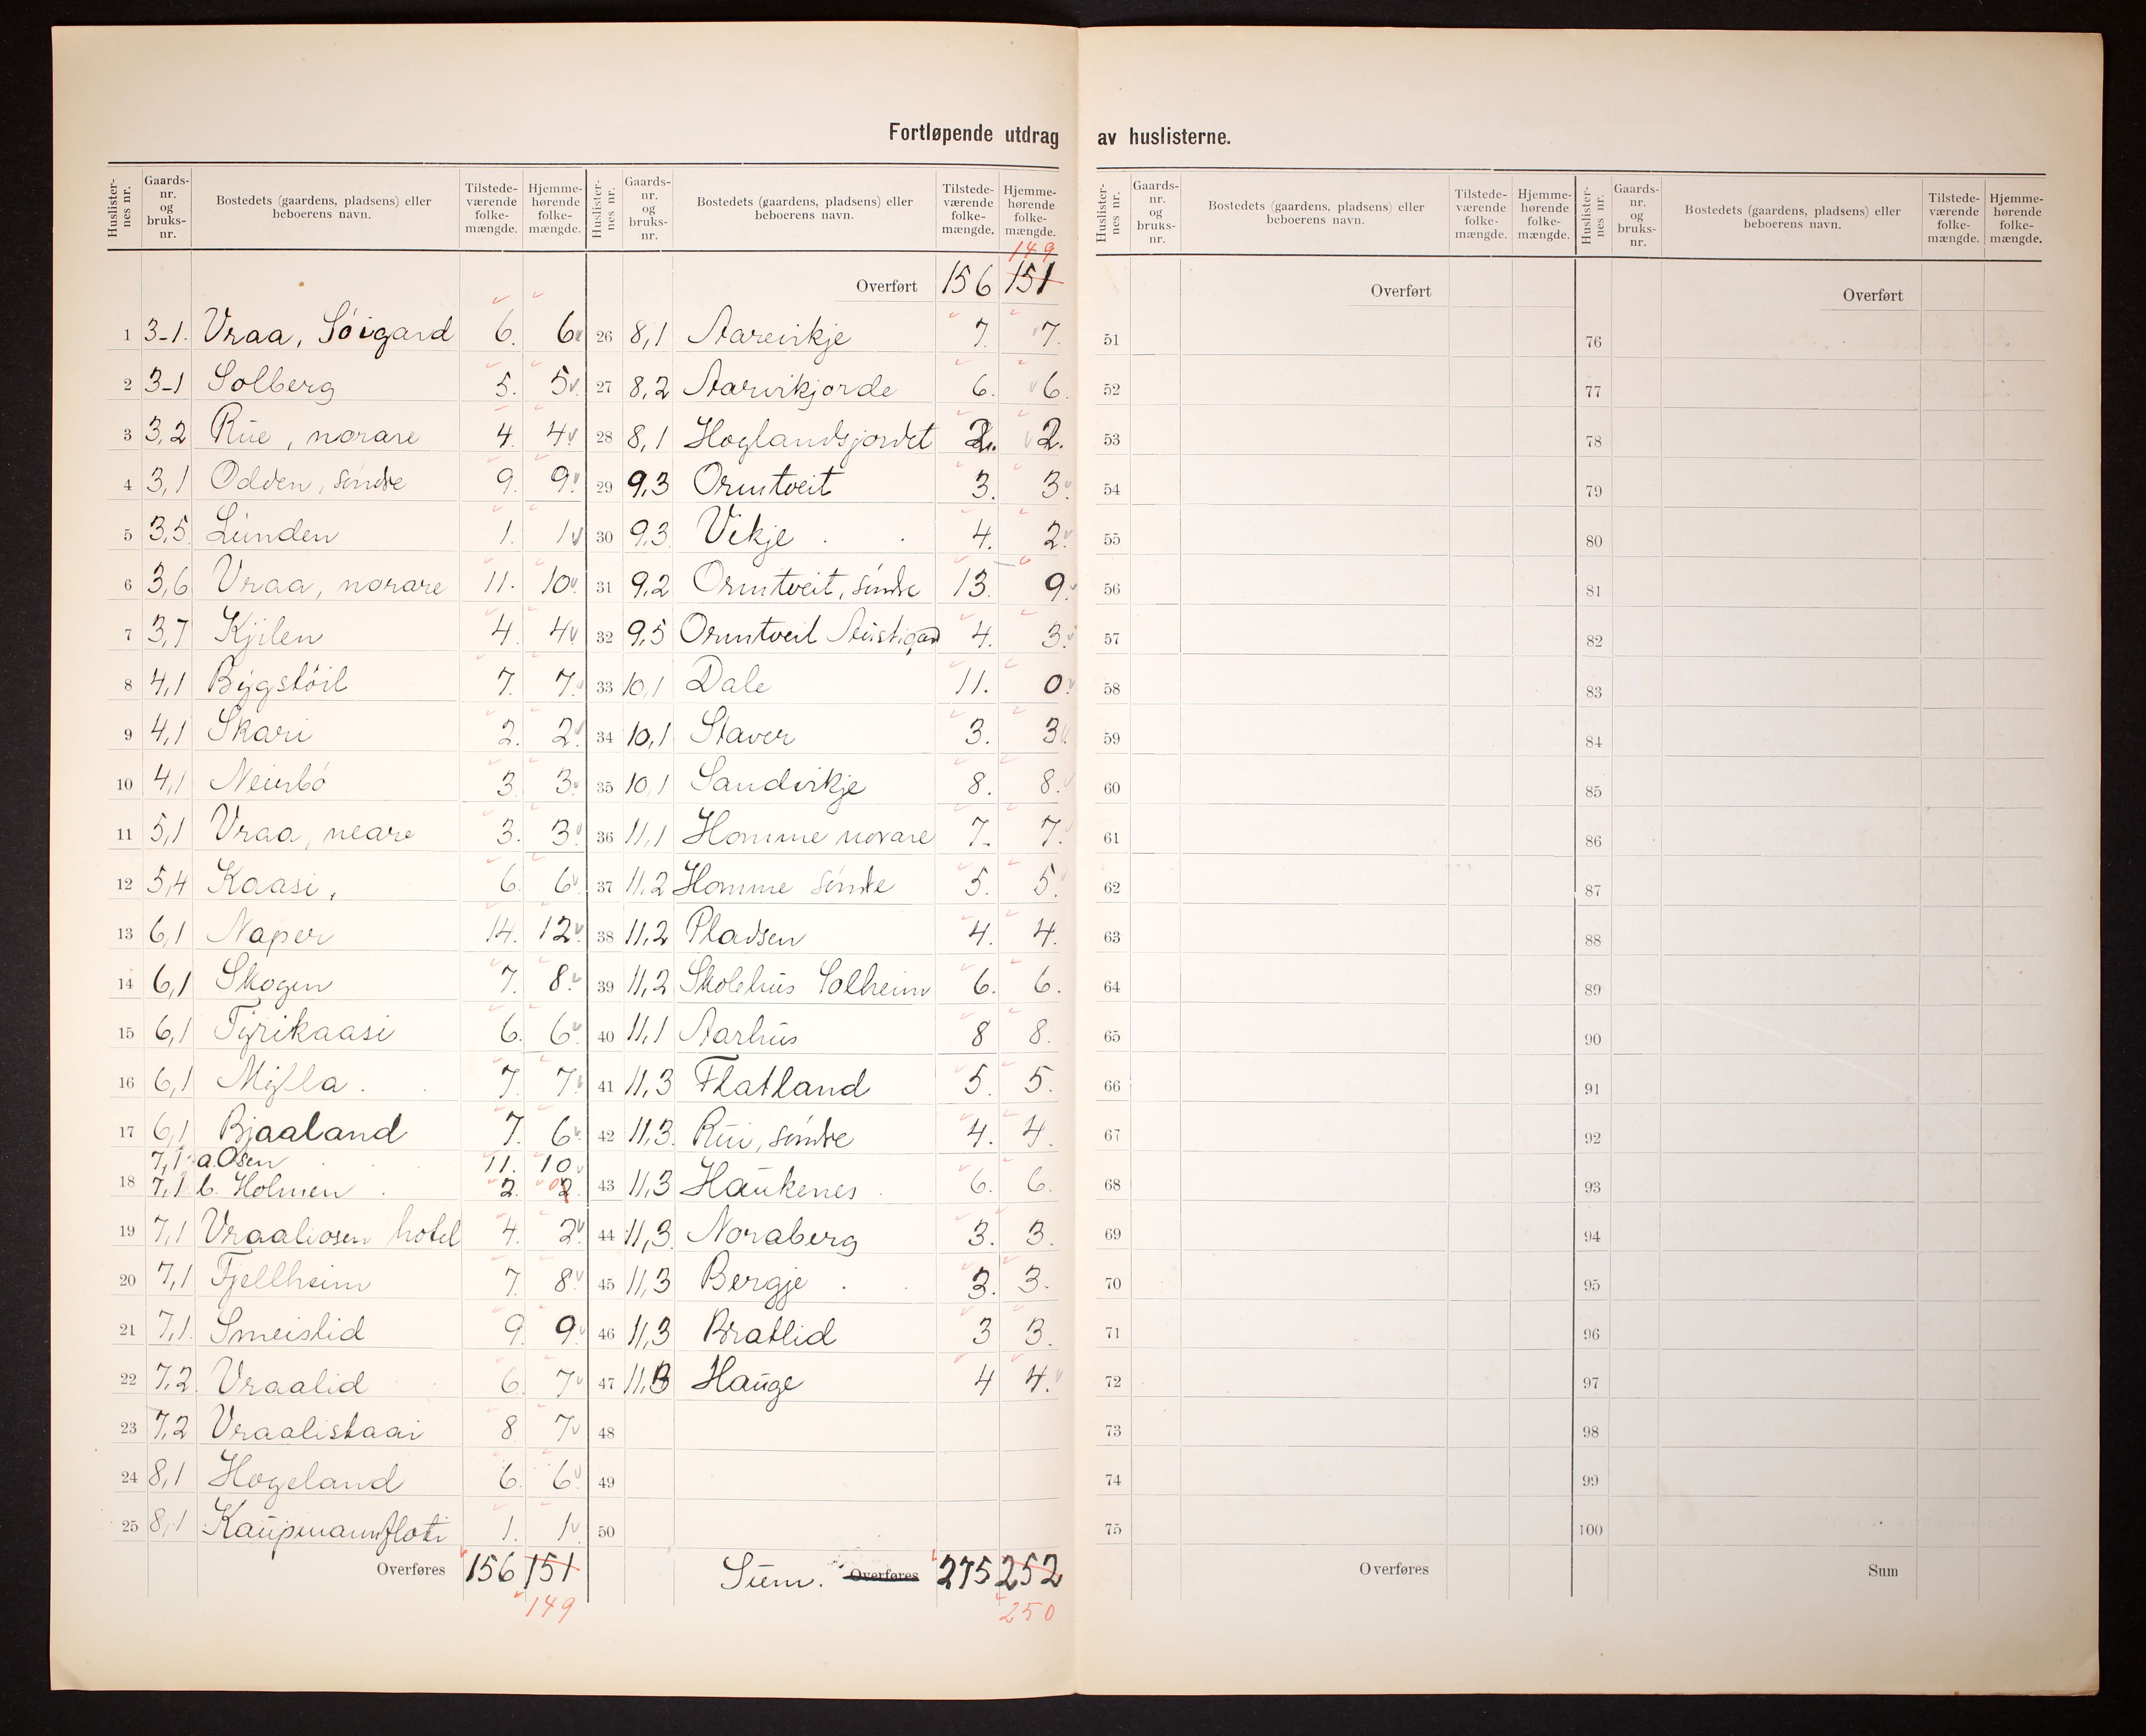 Fortløpende utdrag av huslisterne.
Huslisternes nr. Gaards-nr. og bruks-nr. Bostedets (gaardens, pladsens) eller beboerens navn. Tilstedeværende folkemængde. Hjemmehørende folkemængde.
1 3-1. Vraa, Söigard 6. 6
2 3-1 Solberg 5. 5
3 3,2 Rue, norare 4. 4
4 3,1 Odden, söndre 9. 9
5 3,5 Lunden 1. 1
6 3,6 Vraa, norare 11. 10
7 3,7 Kjilen 4. 4
8 4,1 Bygstöil 7. 7
9 4,1 Skari 2. 2
10 4,1 3. 3
11 5,1 Vraa, neare 3. 3
12 5,4 Kaasi, 6. 6
13 6,1 Naper 14. 12
14 6,1 Skogen 7. 8
15 6,1 Tyrikaasi 6. 6
16 6,1 Mylla. 7. 7
17 6,1 Bjaaland 7. 6
7,1 a. Osen 11. 10
18 7,1 b. Holmen 2. 0 2
19 7,1 Vraaliosen hotel 4. 2
20 7,1 Fjellheim 7. 8
21 7,1. Smeistid 9. 9
22 7,2 Vraalid 6. 7
23 7,2 Vraalistaai 8 7
24 8,1 Hogeland 6. 6
25 8,1 Kaupmannsfloti 1. 1
Overføres 156 151
149
Huslisternes nr. Gaards-nr. og bruks-nr. Bostedets (gaardens, pladsens) eller beboerens navn. Tilstedeværende folkemængde. Hjemmehørende folkemængde.
149
Overført 156 151
26 8,1 Aarvikje 7. 7.
27 8,2 Aarvikjorde 6. 6.
28 8,1 Hoglandsjordet 2. 2.
29 9,3 Ormtveit 3. 3.
30 9,3 Vikje 4. 2.
31 9,2 Ormtveit, söndre 13. 9.
32 9,5 Ormtveit Austigard 4. 3.
33 10,1 Dale 11. 0
34 10,1 Staver 3. 3
35 10,1 Sandvikje 8. 8.
36 11,1 Homme norare 7. 7.
37 11,2 Homme söndre 5. 5.
38 11,2 Pladsen 4. 4.
39 11,2 Skolehus Solheim 6. 6.
40 11,1 Aarhus 8 8.
41 11,3 Flatland 5. 5.
42 11,3. Rui, söndre 4. 4.
43 11,3 Haukenes 6. 6.
44 11,3 Noraberg 3. 3.
45 11,3 Bergje 3. 3.
46 11,3 Bratlid 3 3.
47 11,3 Hauge 4 4.
48
49
50
Sum. Overføres 275 252
250
Huslisternes nr. Gaards-nr. og bruks-nr. Bostedets (gaardens, pladsens) eller beboerens navn. Tilstedeværende folkemængde. Hjemmehørende folkemængde.
Overført
51
52
53
54
55
56
57
58
59
60
61
62
63
64
65
66
67
68
69
70
71
72
73
74
75
Overføres
Huslisternes nr. Gaards-nr. og bruks-nr. Bostedets (gaardens, pladsens) eller beboerens navn. Tilstedeværende folkemængde. Hjemmehørende folkemængde.
Overført
76
77
78
79
80
81
82
83
84
85
86
87
88
89
90
91
92
93
94
95
96
97
98
99
100
Sum